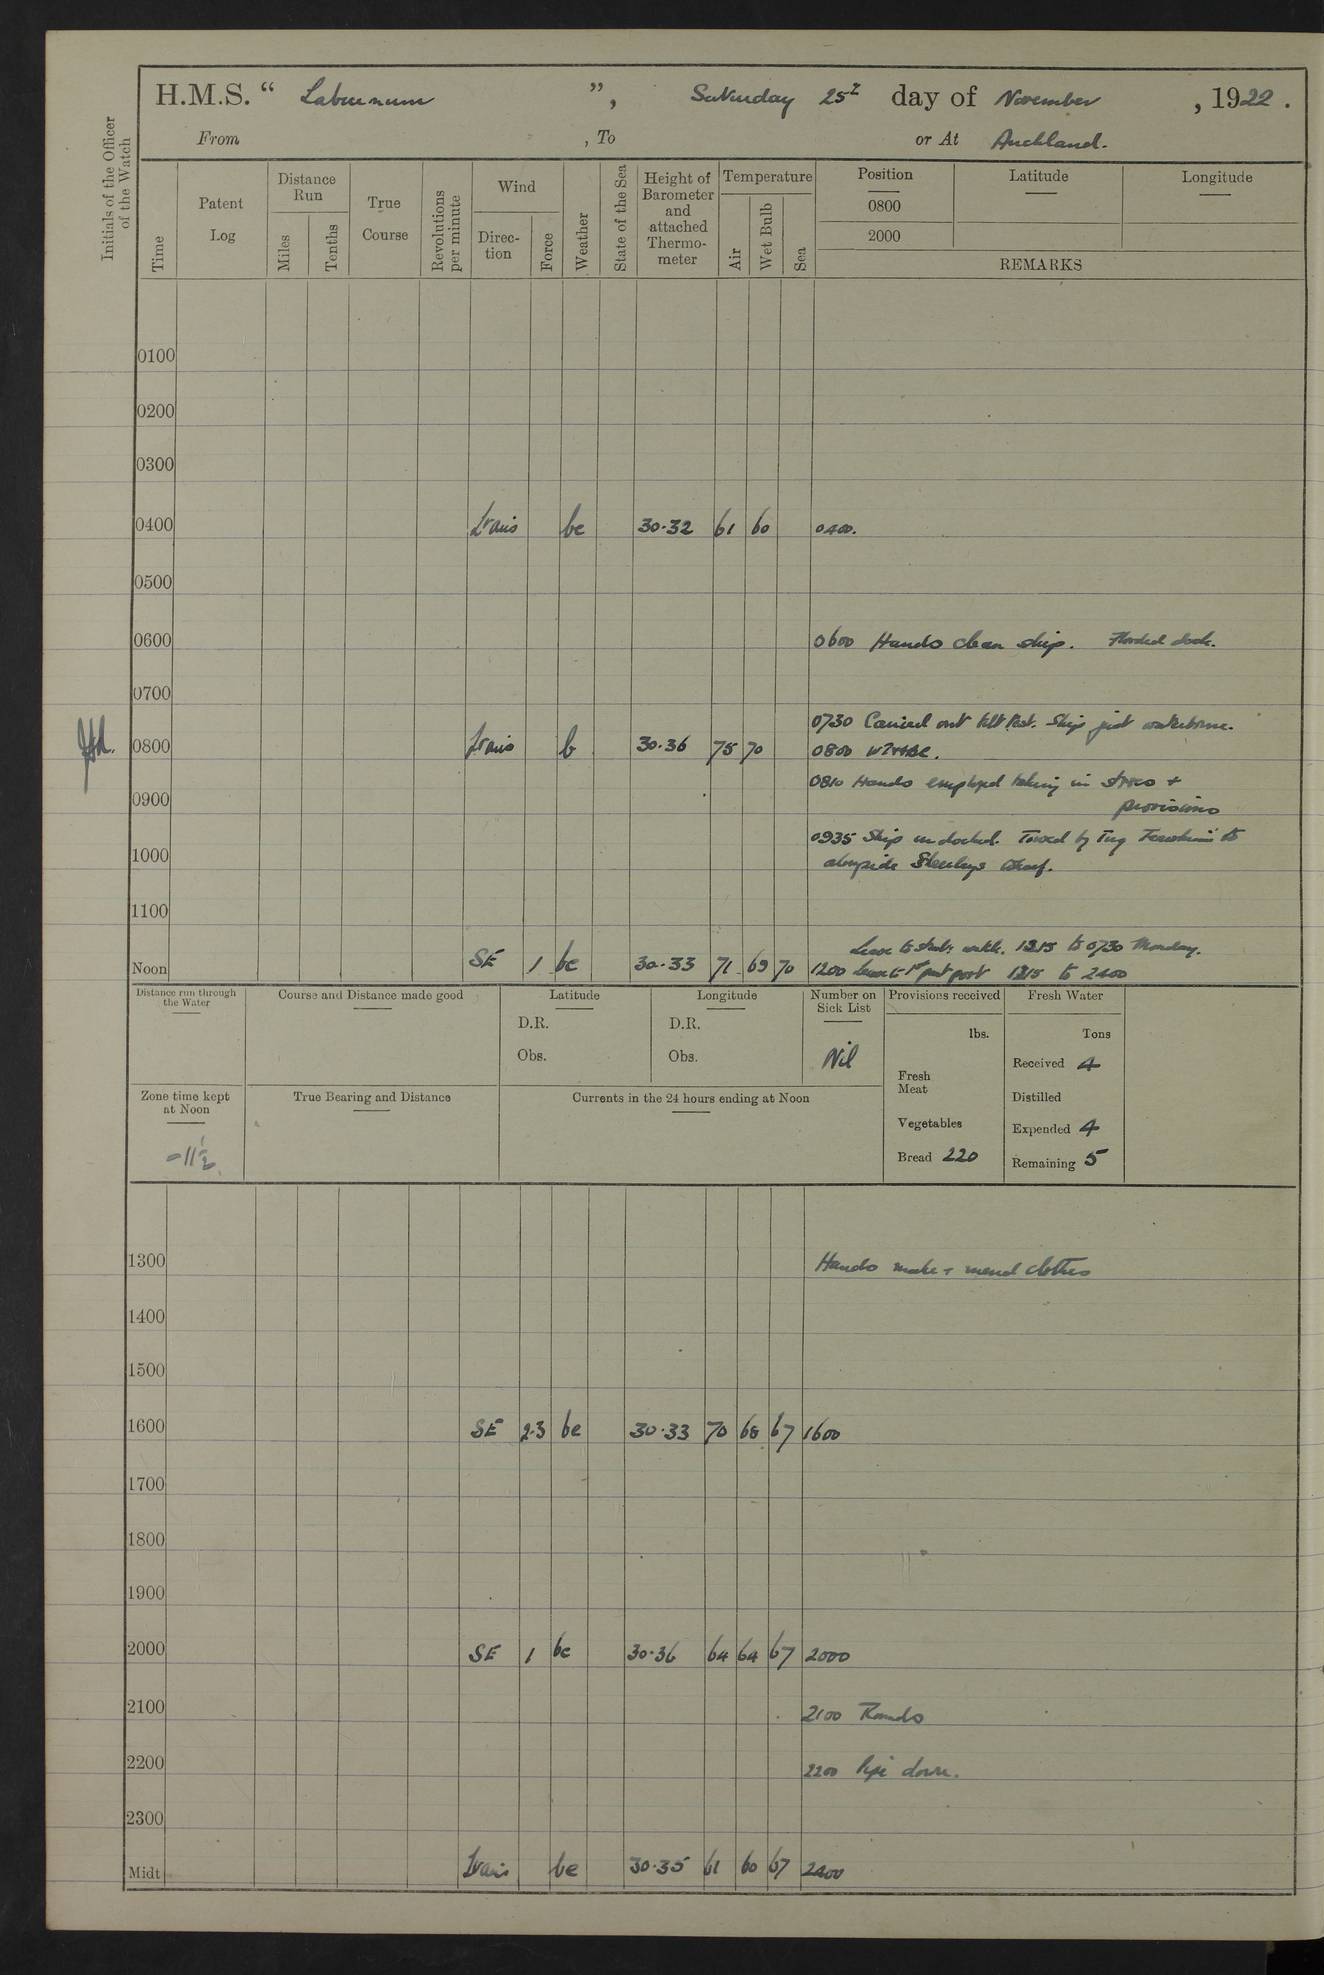 H.M.S. “ Laburnum ”, Saturday 25th day of November, 1922.
From , To or At Auckland.
Initials of the Officer of the Watch
Time
Patent Log
Distance Run
Miles
Tenths
True Course
Revolutions per minute
Wind
Direction
Force
Weather
State of the Sea
Height of Barometer and attached Thermometer
Temperature
Air
Wet Bulb
Sea
Position
0800
2000
Latitude
Longitude
REMARKS
0100
0200
0300
0400 Lt airs bc 30.32 61 60 0400.
0500
0600 0600 Hands clean ship. Flooded dock.
0700
0730 Carried out tilt test. Ship just waterborne.
0800 Lt airs b 30.36 75 70 0800
0810 Hands employed taking in stores +
provisions
0900
0935 Ship undocked. Towed by Tug to
1000 alongside Wharf.
1100
Leave to 1215 to 0730 Monday.
Noon SE 1 bc 30.33 71 69 70 1200 Leave to 1st part port 1215 to 2400
Distance run through the Water
Course and Distance made good
Latitude
D.R.
Obs.
Longitude
D.R.
Obs.
Number on Sick List
Nil
Provisions received
lbs.
Fresh Meat
Vegetables
Bread 220
Fresh Water
Tons
Received 4
Distilled
Expended 4
Remaining 5
Zone time kept at Noon
-11½
True Bearing and Distance
Currents in the 24 hours ending at Noon
1300 Hands make + mend clothes
1400
1500
1600 SE 2.3 bc 30.33 70 68 67 1600
1700
1800
1900
2000 SE 1 bc 30.36 64 64 67 2000
2100 2100 Rounds
2200 2200 Pipe down.
2300
Midt Lt airs bc 30.35 61 60 67 2400